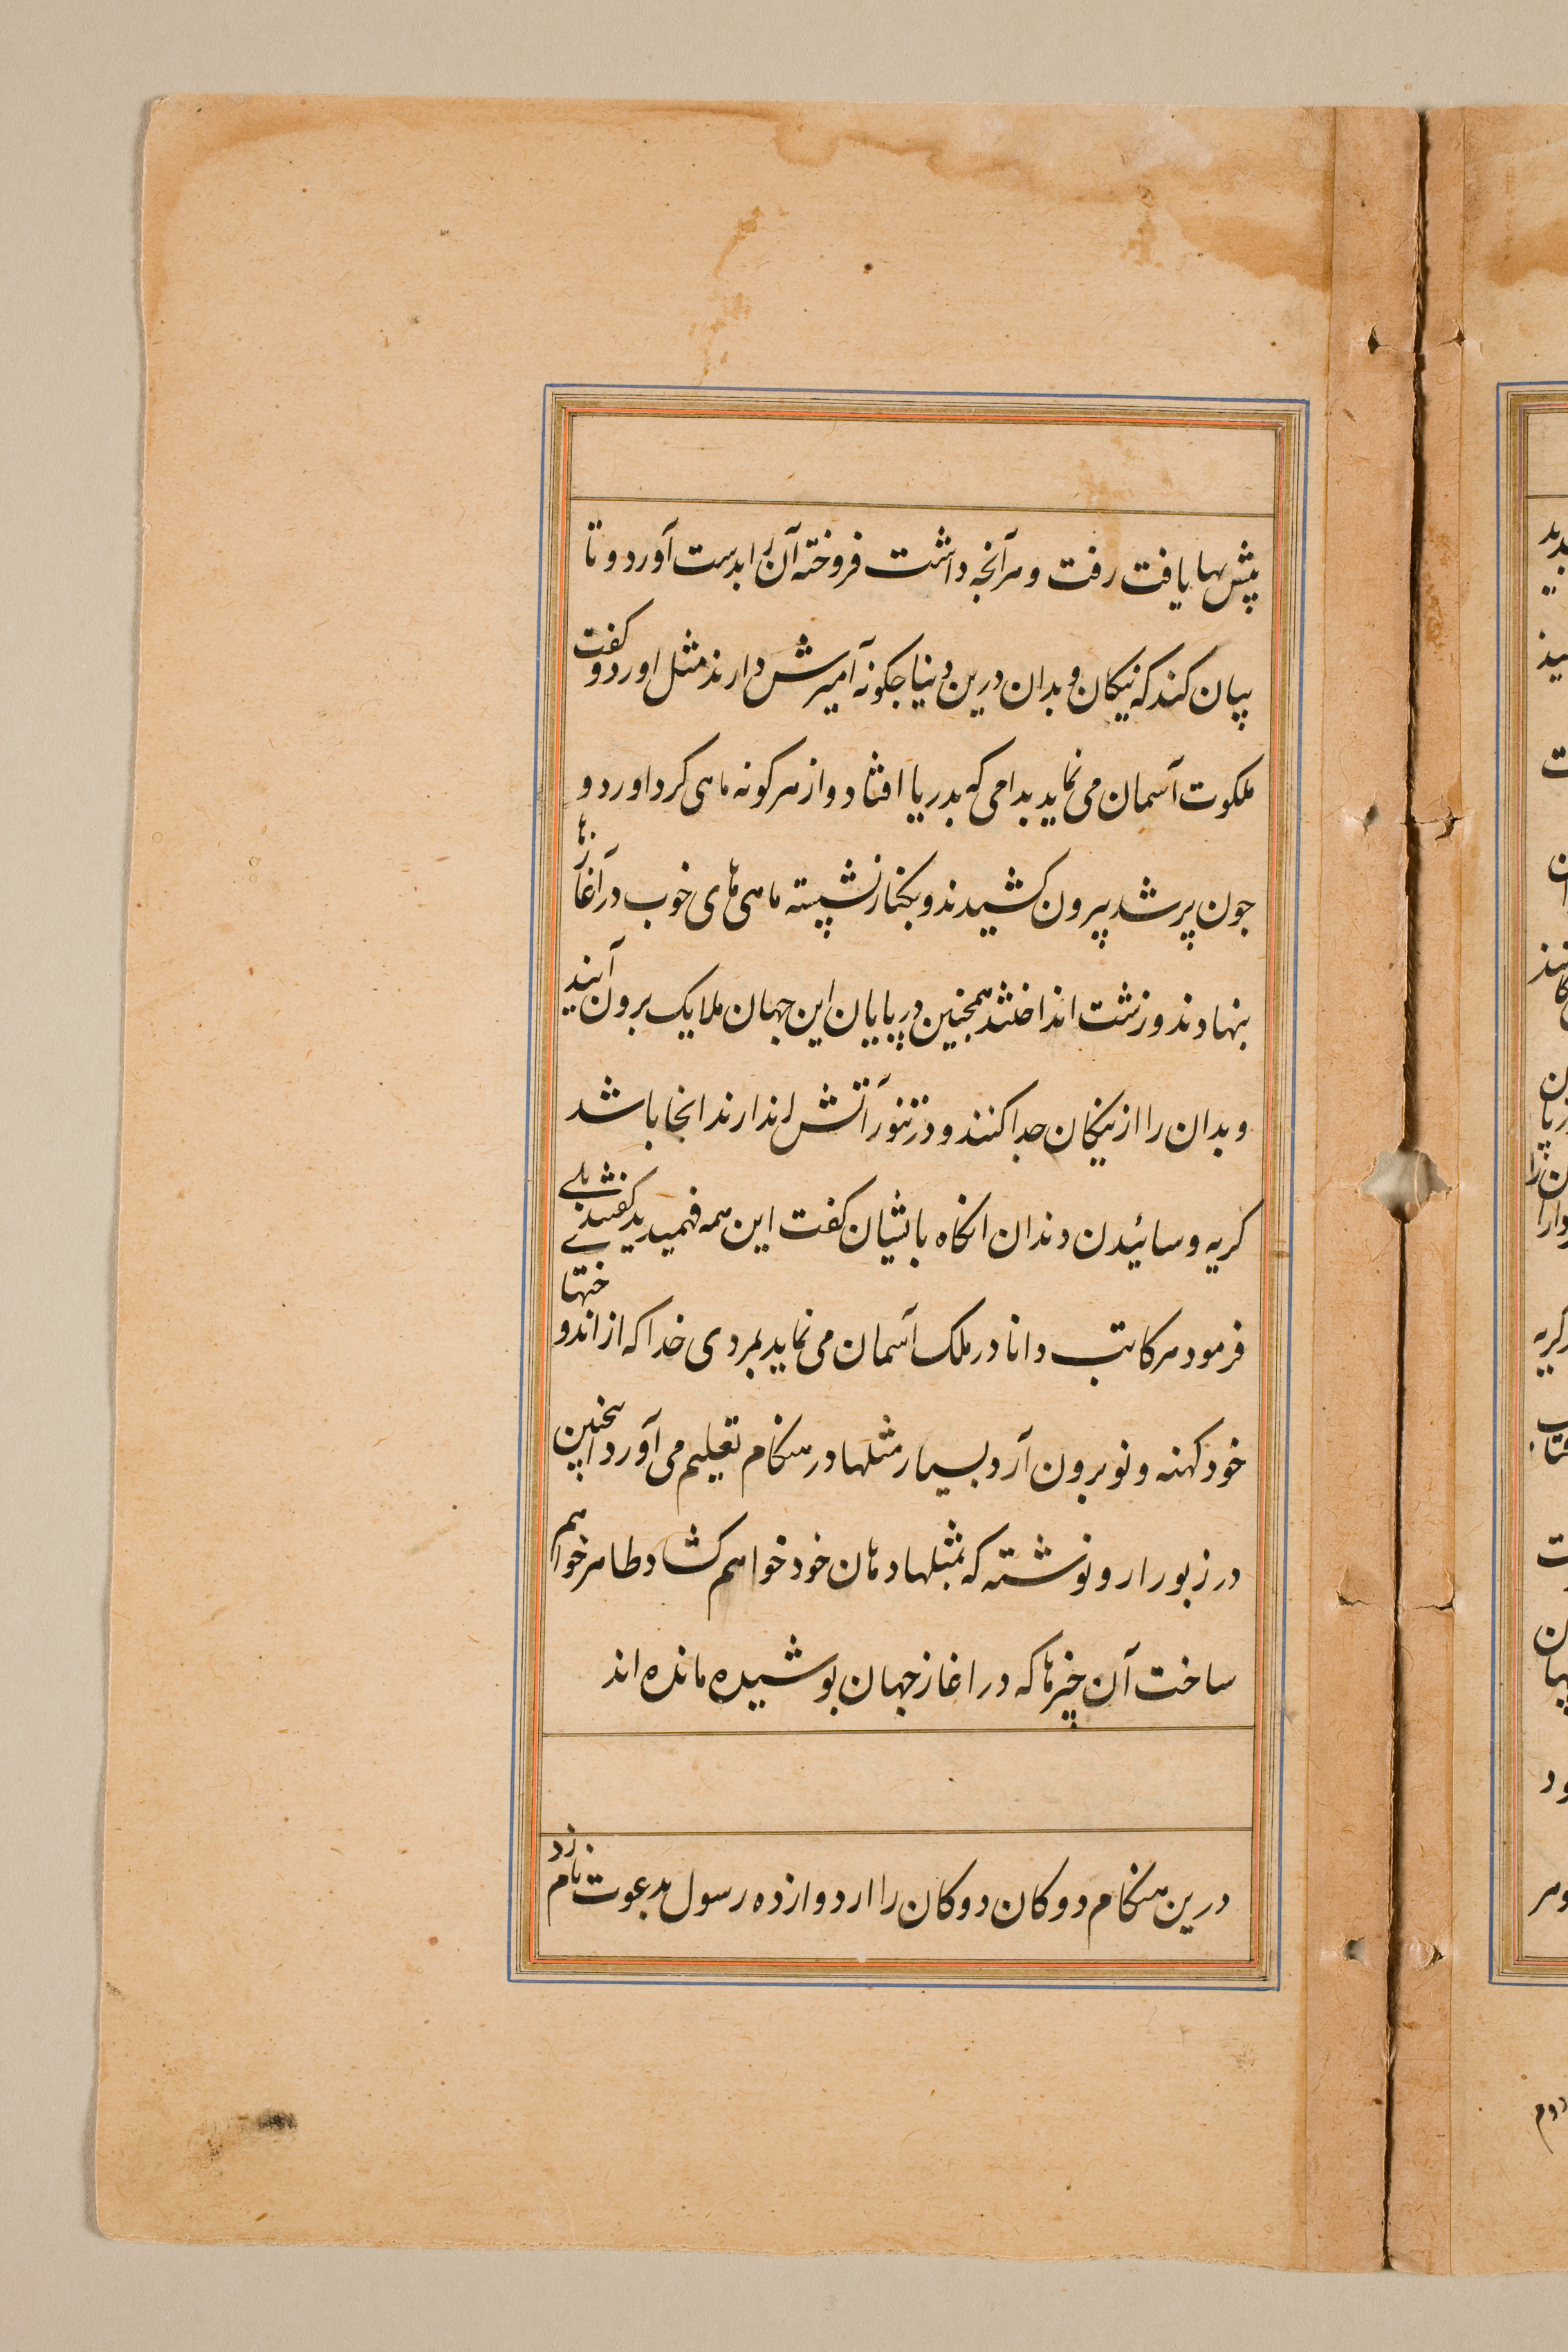 پیش بها یافت رفت و هر آنچه داشت فروخته آن را بدست آورد و تا
بیان کند که نیکان و بدان درین دنیا چکونه آمیزش دارند مثل اورد و کفت
ملکوت آسمان می نماید بدامی که بدریا افتاد و از هر کونه ماهی کرد اورد و
چون پر شد بیرون کشیدند و بکنار نشسته ماهی های خوب در آغازها
بنهادند و زشت انداختند همچنین در پایان این جهان ملایک برون آیند
و بدان را از نیکان جدا کنند و در تنور آتش اندازند انجا باشد
کریه و سائیدن دندان انکاه بایشان کفت این همه فهمیدید کفتند بلے
فرمود هر کاتب دانا در ملک آسمان می نماید بمردی خدا که از اندوختها
خود کهنه و نو برون آرد بسیار مثلها در هنکام تعلیم می آورد اینچنین
در زبور ارو نوشته که بمثلها دهان خود خواهم کشاد ظاهر خواهم
ساخت آن چیزها که در اغاز جهان پوشیده مانده اند
درین هنکام دوکان دوکان را از دوازده رسول بدعوت نامزد